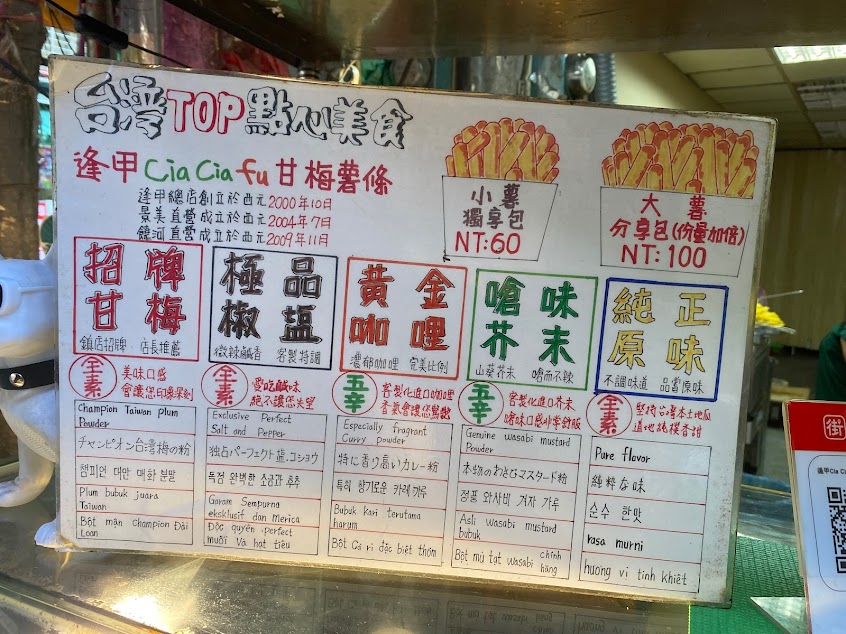 台灣TOP點心美食
逢甲Cia Cia fu甘梅薯條
逢甲總店創立於西元2000年10日
景美直營成立於西元2004年7日
饒河直營成立於西元2009年11日
小薯
獨享包
NT:60
大薯
分享包(份量加倍)
NT:100
招牌
甘梅
鎮店招牌 店長推薦
全素
美味口感
會讓您印象深刻
Champion Taiwan plum
Powder
チャンピオン台湾梅の粉
챔피언 대만 매화 분말
Plum bubuk juara
Taiwan
Bột mận champion Đài
Loan
極品
椒鹽
微辣鹹香 客製特調
全素
愛吃鹹味
絕不讓您失望
Exclusive Perfect
Salt and Pepper
独占パーフェクト塩、コショウ
독점 완벽한 소금과 후추
Garam Sempurna
eksklusif dan Merica
Độc quyền perfect
muối Và hạt tiêu
黃金
咖哩
濃郁咖哩 完美比例
五辛
客製化進口咖哩
香氣會讓您驚艷
Especially fragrant
Curry powder
特に香り高いカレー粉
특히 향기로운 카레 가루
Bubuk kari terutama
harum
Bột Cà ri đặc biệt thơm
嗆味
芥末
山葵芥末 嗆而不辣
五辛
客製化進口芥末
嗆味口感非常舒服
Genuine wasabi mustard
Powder
本物のわさびマスタード粉
정품 와사비 겨자 가루
Asli wasabi mustard
bubuk
Bột mù tạt wasabi chính
hãng
純正
原味
不調味道 品嘗原味
全素
堅持台灣本土地瓜
道地純樸香甜
Pure flavor
純粋な味
순수 한맛
rasa murni
hương vị tinh khiết
街
逢甲Cia Cia